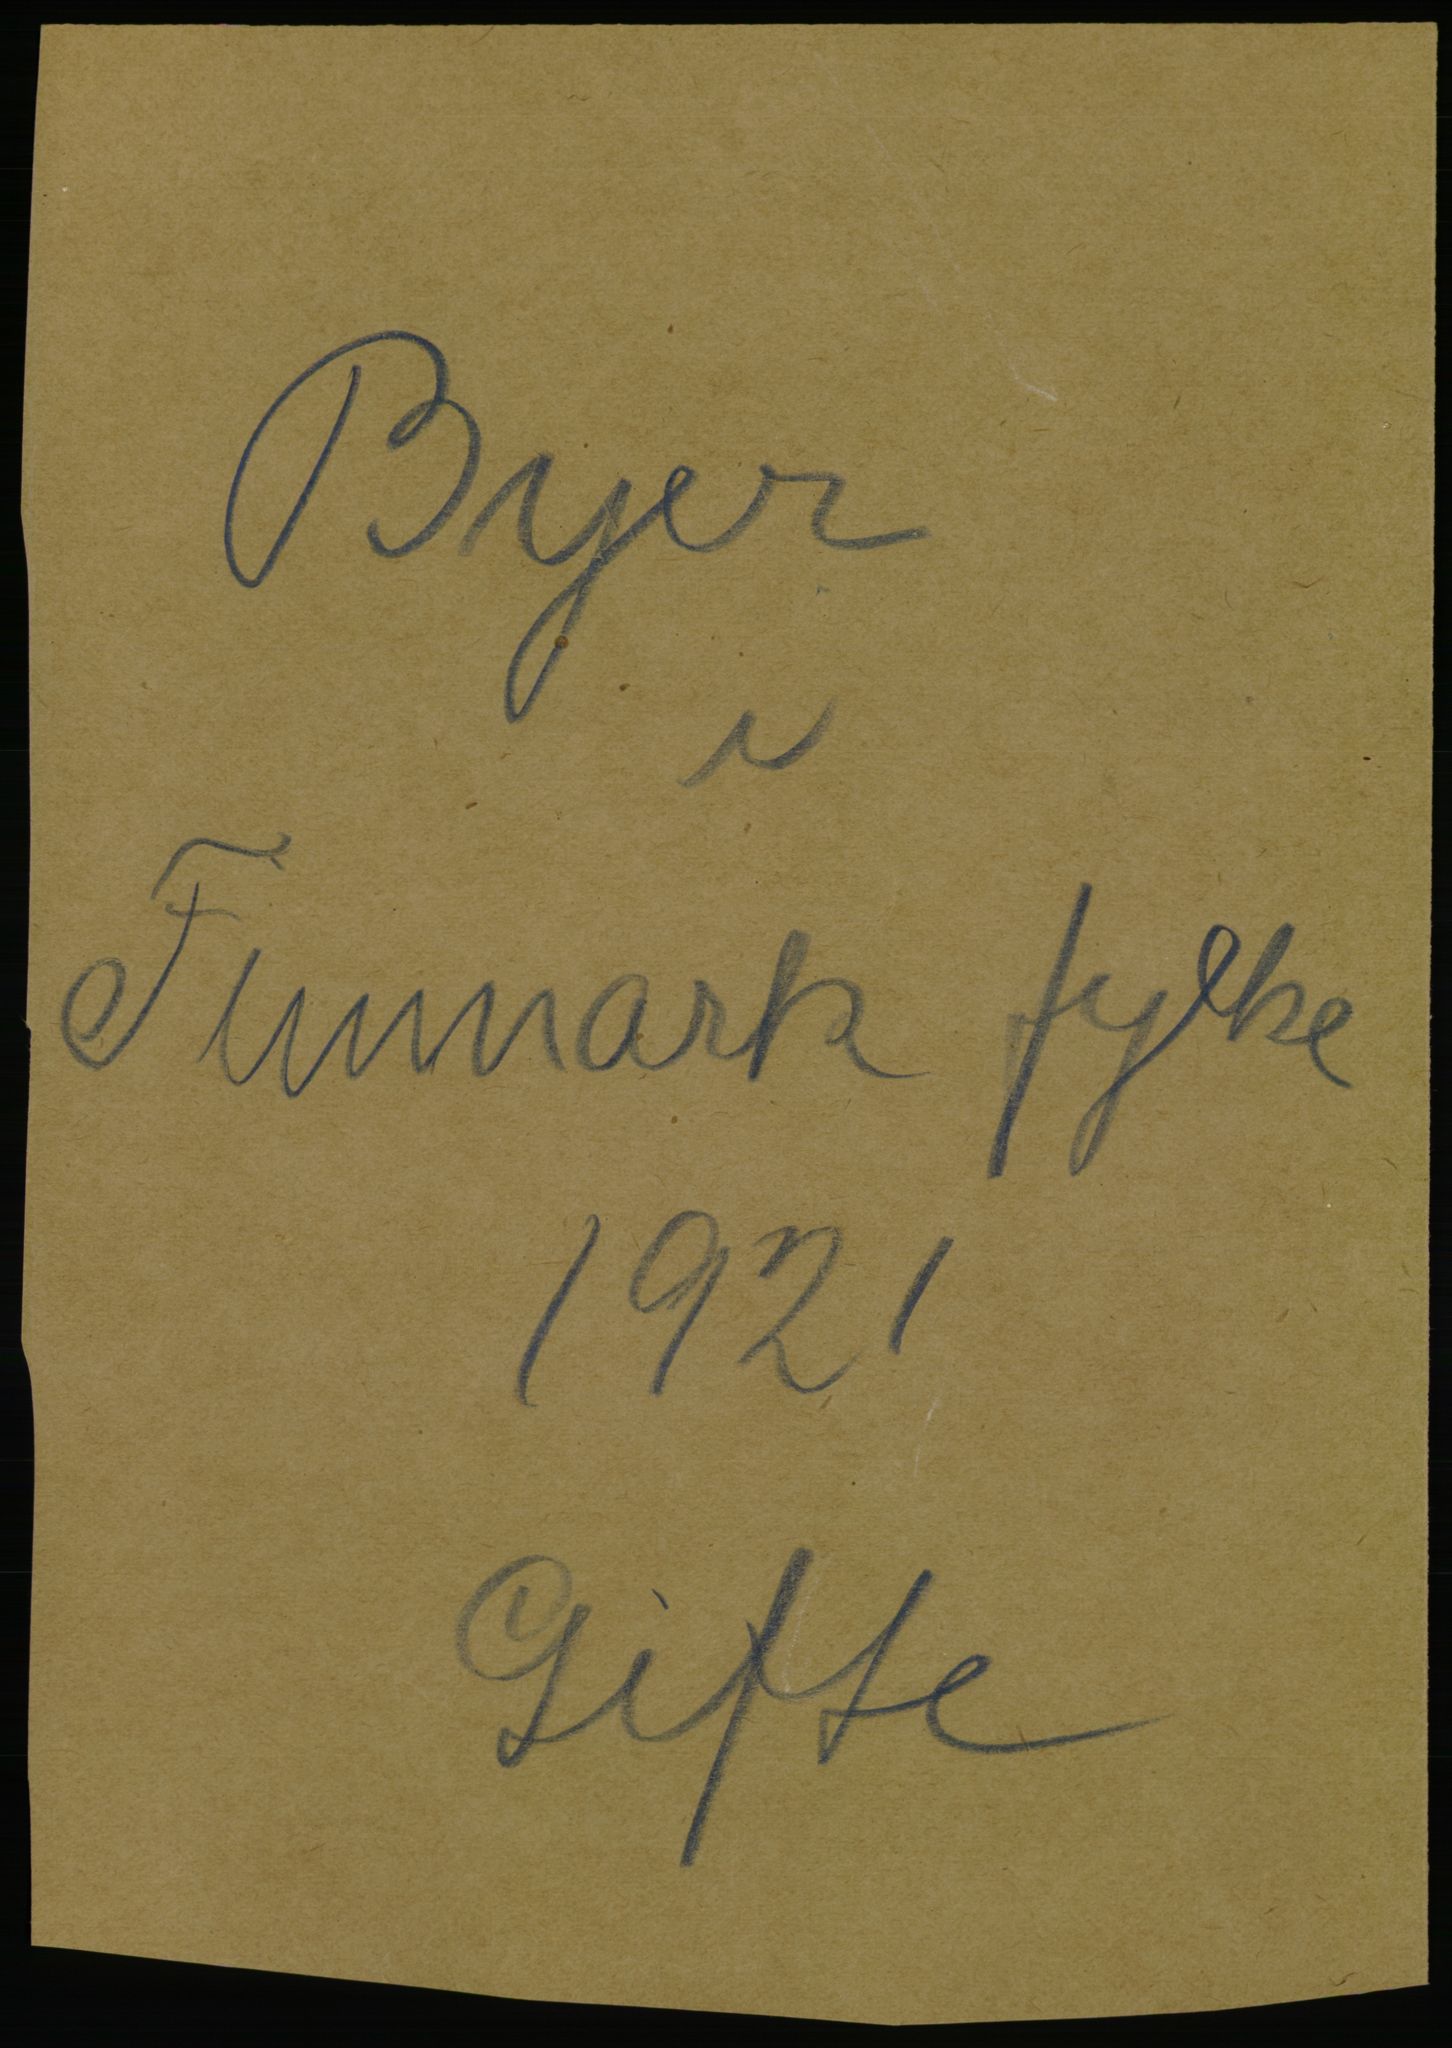 Byer
i
Finnmark fylke
1921
Gifte